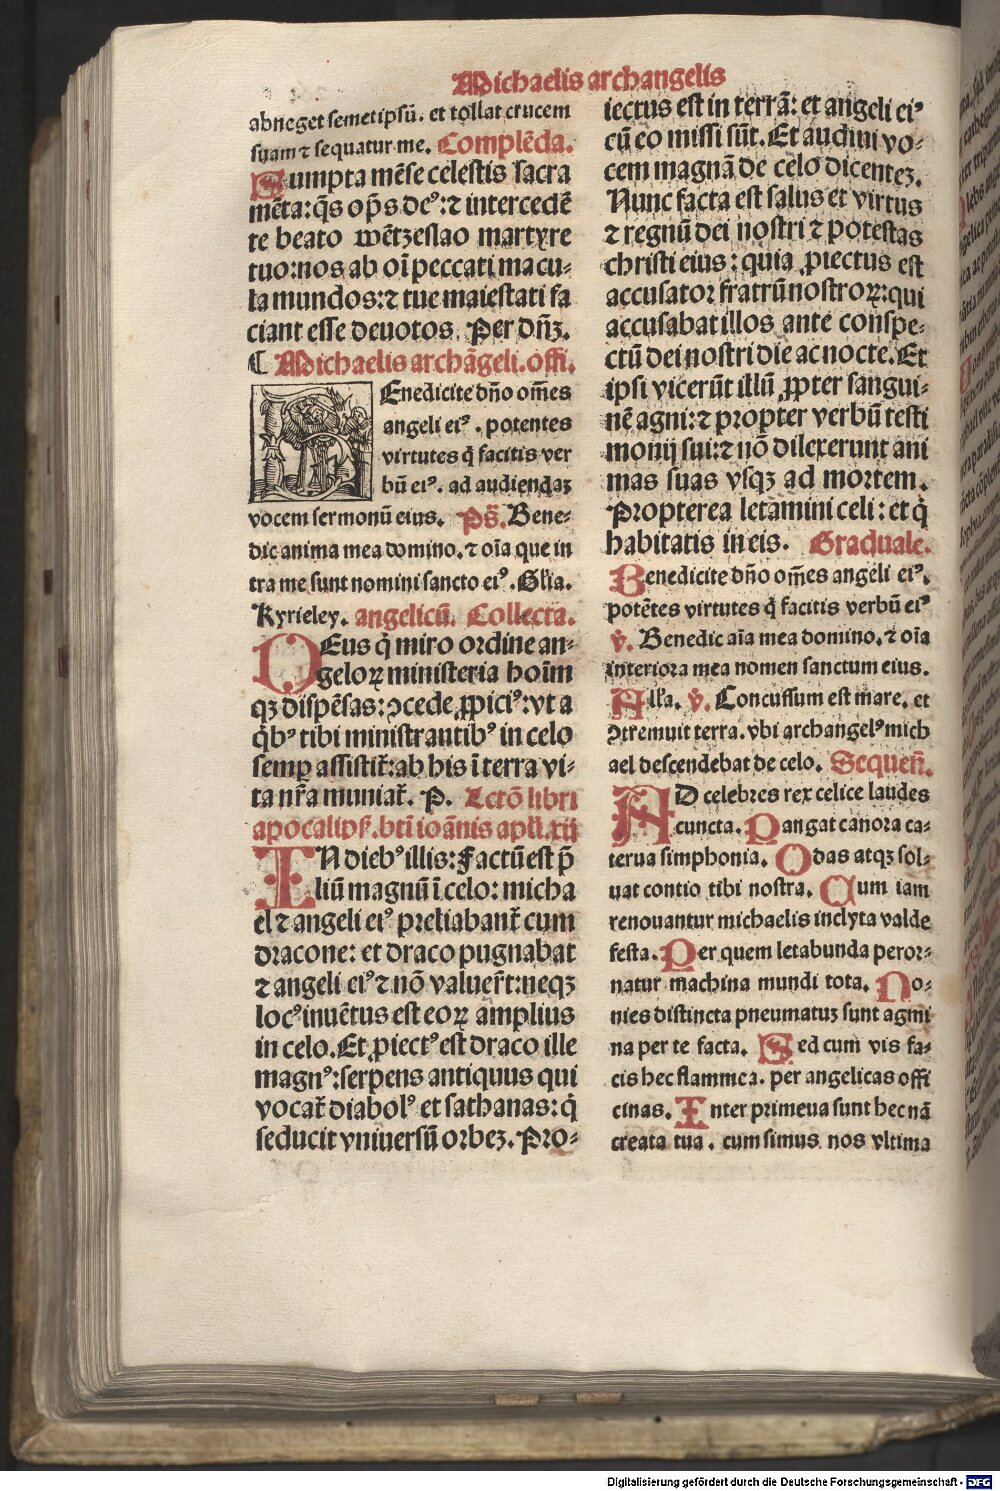 Michaelis archangelis
abneget semetipsū. et tollat crucem
suam ⁊ sequatur me. Complēda.
Sumpta mēse celestis sacra
mēta: q̄s op̄s deꝰ: ⁊ intercedē
te beato wētzeslao martyre
tuo: nos ab oī peccati macu⸗
la mundos: ⁊ tue maiestati fa
ciant esse deuotos. Per dn̄ꝫ.
¶ Michaelis archāgeli. offi.
BEnedicite dn̄o om̄es
angeli eiꝰ. potentes
virtutes q̄ facitis ver
bū eiꝰ. ad audiendaꝫ
vocem sermonū eius. Ps̄. Bene⸗
dic anima mea domino. ⁊ oīa que in
tra me sunt nomini sancto eiꝰ. Gl'ia.
Kyrieley. angelicū. Collecta.
DEus q̄ miro ordine an⸗
geloꝝ ministeria hoīm
qꝫ dispēsas: ꝯcede ꝓpiciꝰ: vt a
q̄bꝰ tibi ministrantibꝰ in celo
semꝑ assistit̄: ab his ī terra vi⸗
ta nr̄a muniat̄. P. Lectō libri
apocalipẜ. bt̄i ioānis apl'i. xij
IN diebꝰ illis: Factū est p̄
liū magnū ī celo: micha
el ⁊ angeli eiꝰ preliabant̄ cum
dracone: et draco pugnabat
⁊ angeli eiꝰ ⁊ nō valuer̄t: neqꝫ
locꝰ inuētus est eoꝝ amplius
in celo. Et ꝓiectꝰ est draco ille
magnꝰ: serpens antiquus qui
vocat̄ diabolꝰ et sathanas: q̄
seducit vniuersū orbeꝫ. Pro⸗
iectus est in terrā: et angeli eiꝰ
cū eo missi sūt. Et audiui vo⸗
cem magnā de celo dicenteꝫ.
Nunc facta est salus et virtus
⁊ regnū dei nostri ⁊ potestas
christi eius: quia ꝓiectus est
accusator fratrū nostroꝝ: qui
accusabat illos ante conspe⸗
ctū dei nostri die ac nocte. Et
ipsi vicerūt illū ꝓpter sangui⸗
nē agni: ⁊ propter verbū testi
monij sui: ⁊ nō dilexerunt ani
mas suas vsqꝫ ad mortem.
Propterea letamini celi: et q̄
habitatis in eis. Graduale.
Benedicite dn̄o om̄es angeli eiꝰ.
potētes virtutes q̄ facitis verbū eiꝰ
v̄. Benedic aīa mea domino. ⁊ oīa
interiora mea nomen sanctum eius.
All'a. v̄. Concussum est mare. et
ꝯtremuit terra. vbi archangelꝰ mich
ael descendebat de celo. Sequen̄.
AD celebres rex celice laudes
cuncta. Pangat canora ca⸗
terua simphonia. Odas atqꝫ sol⸗
uat contio tibi nostra. Cum iam
renouantur michaelis inclyta valde
festa. Per quem letabunda peror⸗
natur machina mundi tota. No⸗
uies distincta pneumatuꝫ sunt agmi
na per te facta. Sed cum vis fa⸗
cis hec flammea. per angelicas offi
cinas. Inter primeua sunt hec nā
creata tua. cum simus nos vltima
Digitalisierung gefördert durch die Deutsche Forschungsgemeinschaft - DFG